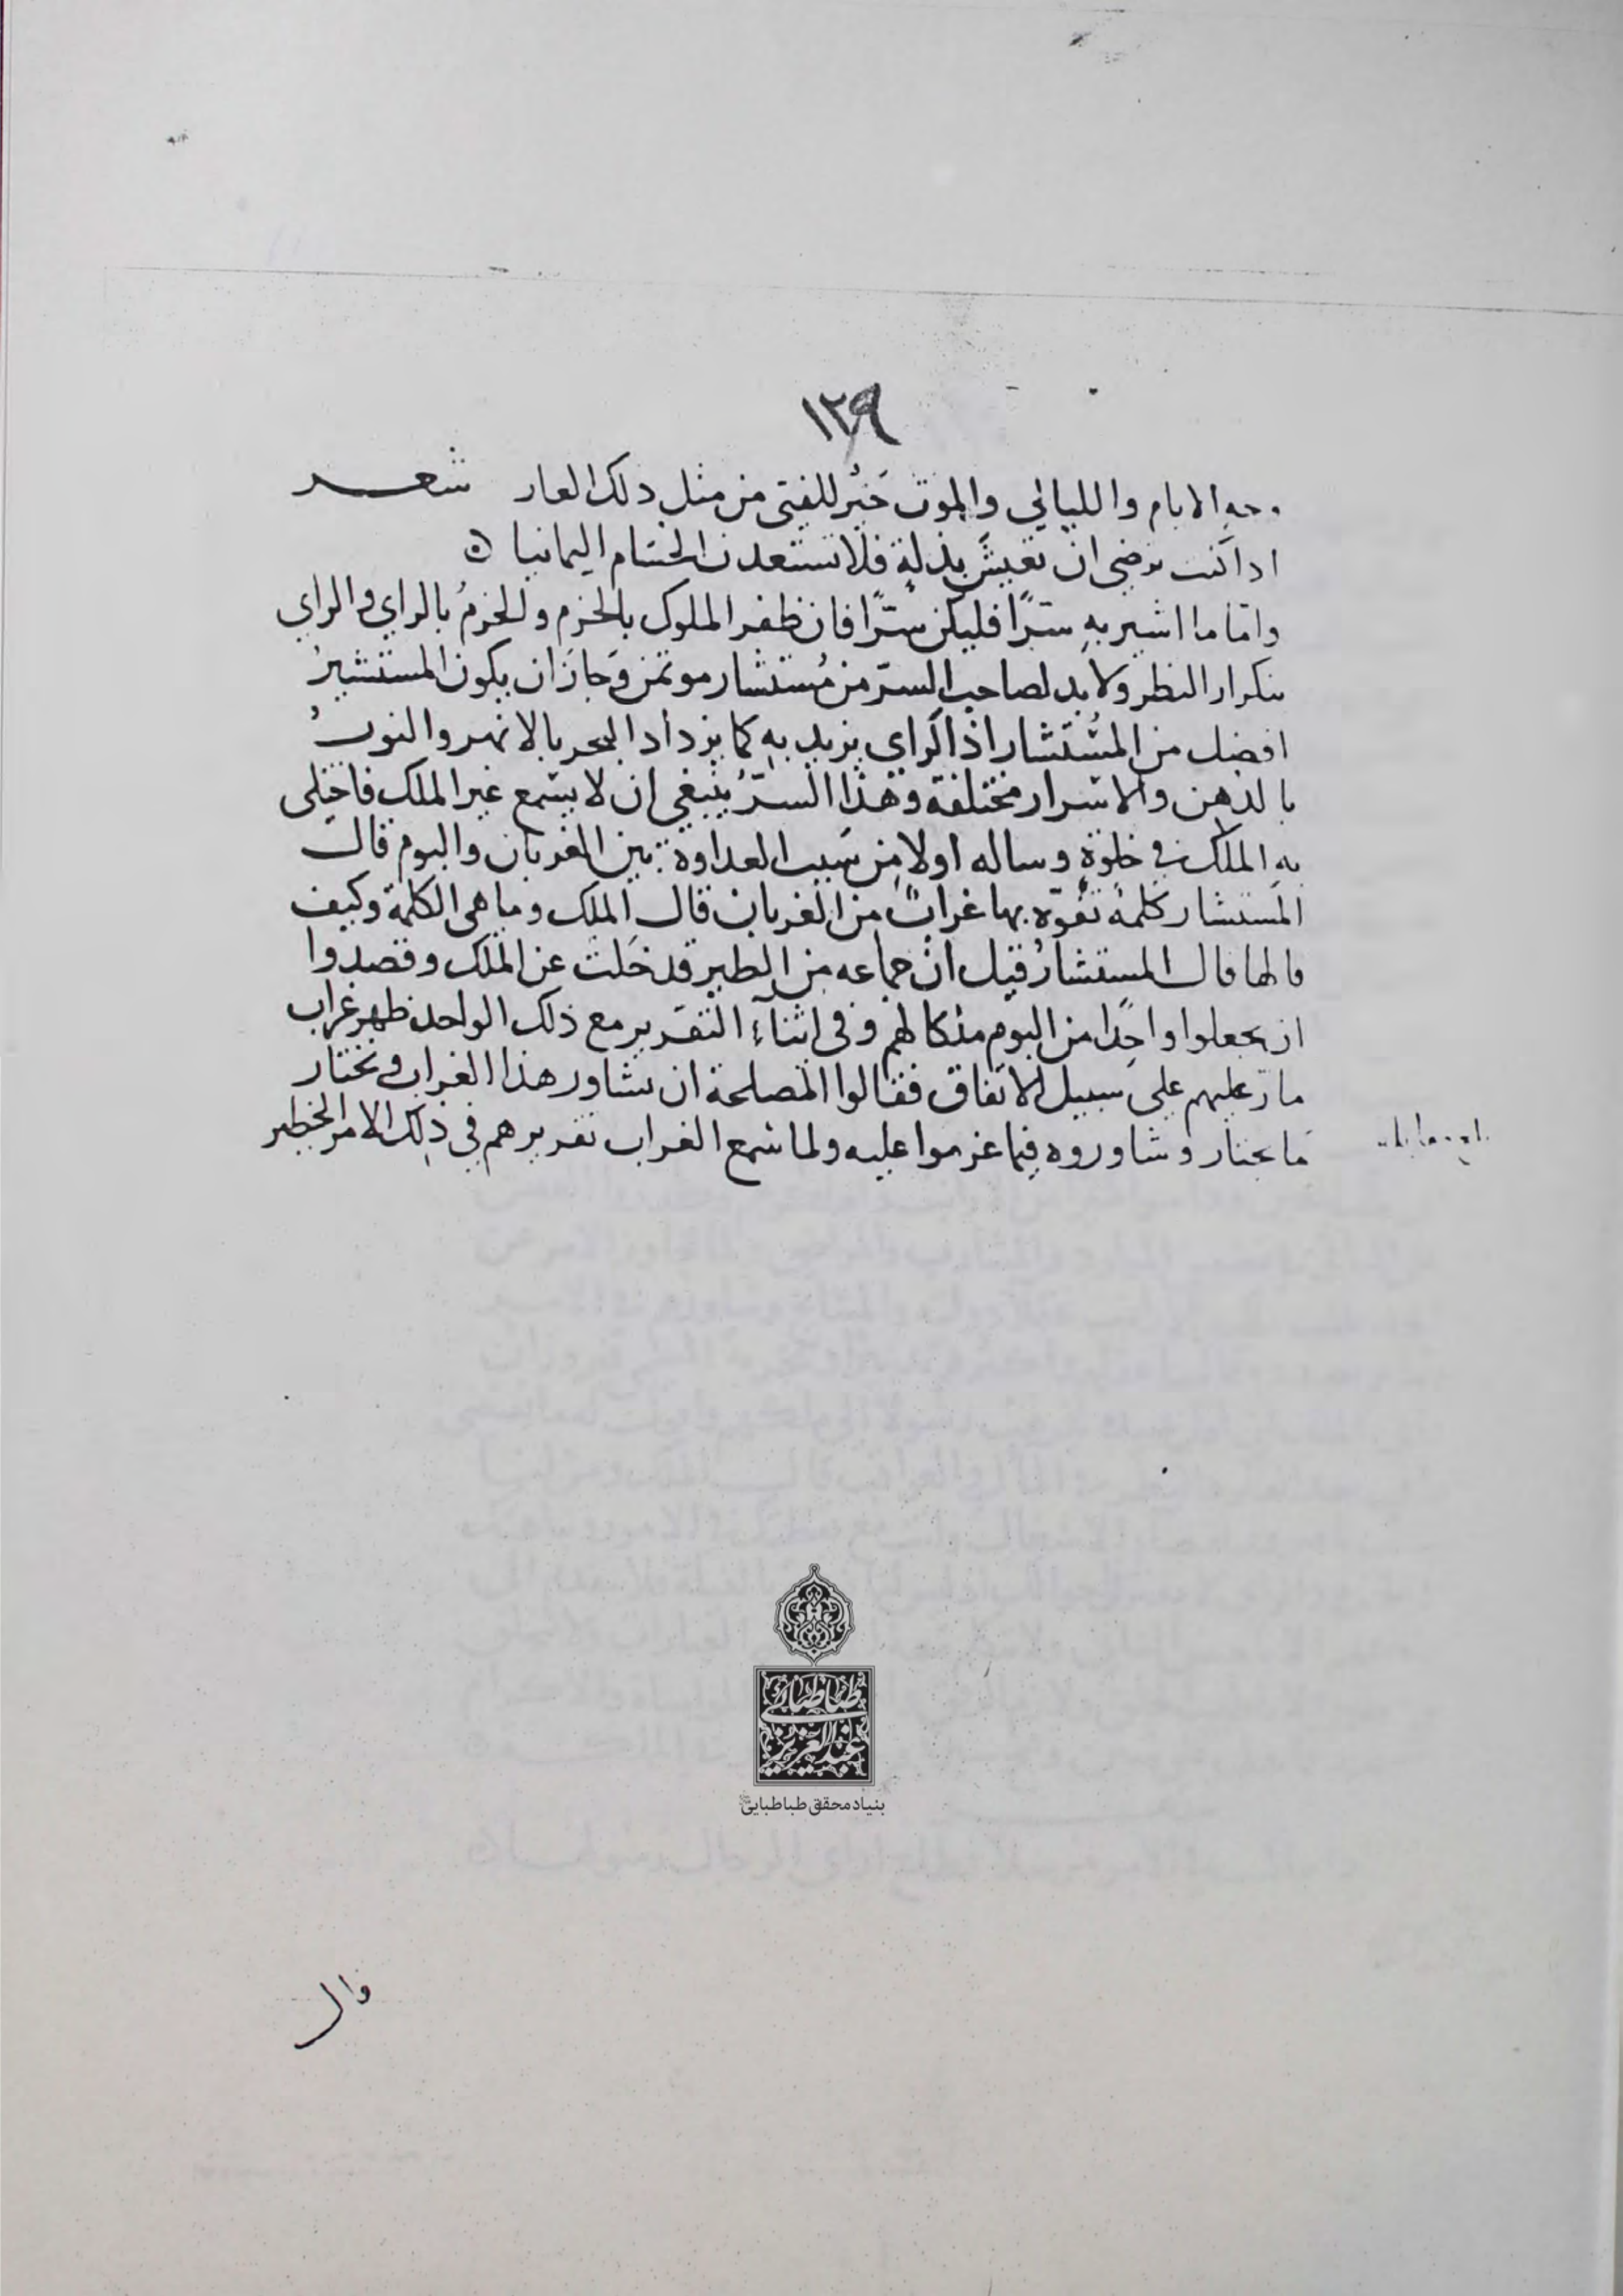 ١٢٩
وجه الايام والليالي والموت خَيرٌ للفتى من مثل ذلك العار شعر
اذا كنت ترضى ان تعيشَ بذلةٍ فلا تستعدن الحسام اليمانيا ۞
وامّا ما اشير به سِرًّا فليكن سِرًّا فان ظفر الملوك بالحزم والحزمُ بالراي والراي
بتكرار النظر ولا بد لصاحب السرّ من مُستشار موتمن وَجازَ ان يكون المستشيرُ
افضل من المُستشار اذ الراي يزيد به كما يزداد البحر بالانهر والنورُ
بالدهن والاسرار مختلفة وَهذا السرُّ ينبغي ان لا يسمع غير الملك فاختلى
به الملك في خلوةٍ وساله اولا من سَبب العداوة بين الغربان والبوم قال
المستشار كلمةٌ تفوّه بها غرابٌ من الغربان قال الملك وما هي الكلمة وكيف
قالها قال المستشارُ قيل انّ جماعه من الطير قد خَلت عن الملك وقصدوا
ان يجعلوا واحِدًا من البوم ملكا لهم وفي اثناءِ التقرير مع ذلك الواحد ظهر غراب
مارّ عليهم على سَبيل الاتفاق فقالوا المصلحة ان نشاور هذا الغراب ونختار
مَا يختار وشاوروه فيما عزموا عليه ولما سَمع الغراب تقريرهم في ذلك الامر الخطير
طباطبايى
عبدالعزيز
بنیاد محقق طباطبایی
قال